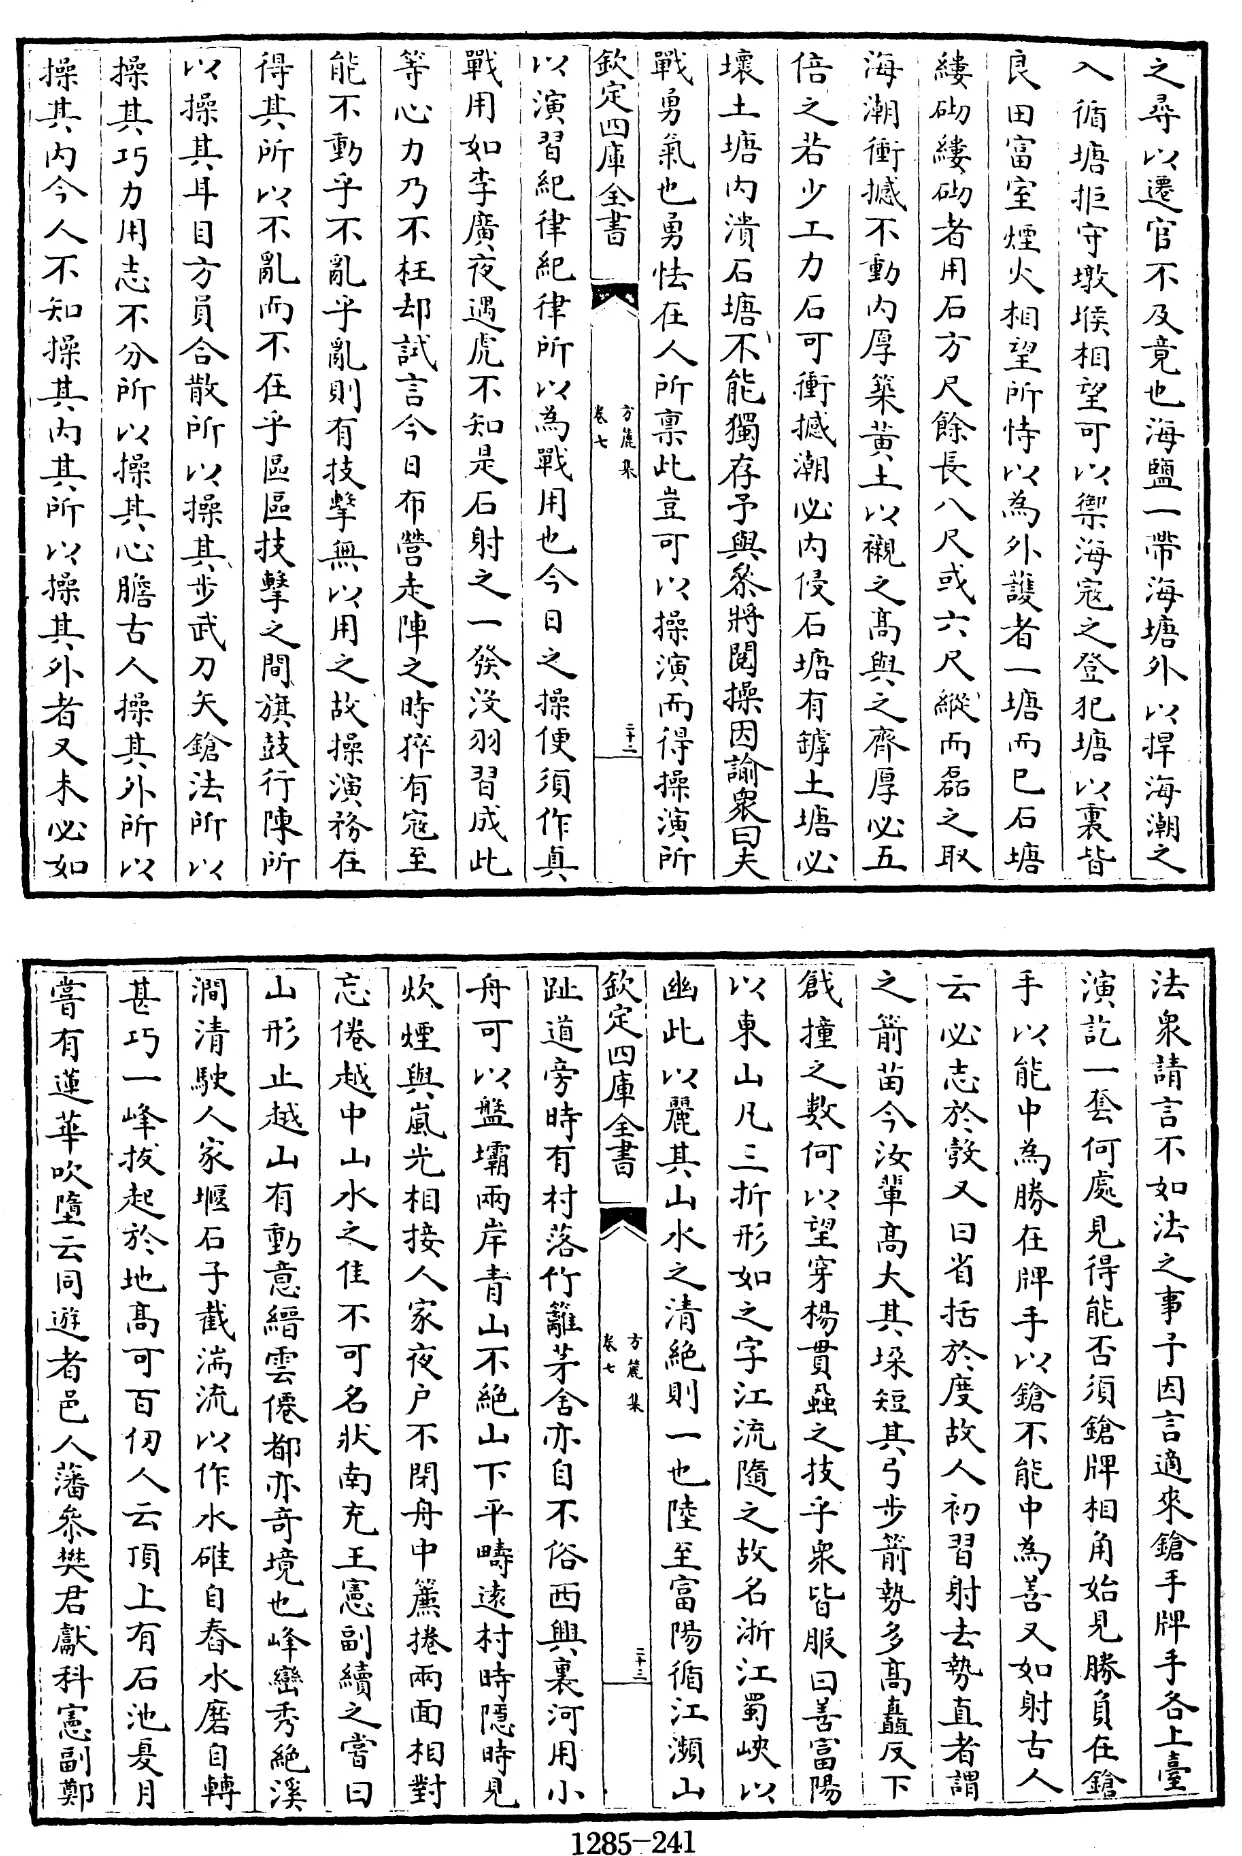 之尋以遷官不及竟也海鹽一帶海塘外以捍海潮之
入循塘拒守墩堠相望可以禦海寇之登犯塘以裏皆
良田富室煙火相望所恃以為外護者一塘而已石塘
縷砌縷砌者用石方尺餘長八尺或六尺縱而磊之取
海潮衝撼不動内厚築黄土以襯之髙與之齊厚必五
倍之若少工力石可衝撼潮必内侵石塘有罅土塘必
壞土塘内潰石塘不能獨存予與叅將閱操因諭衆曰夫
戰勇氣也勇怯在人所禀此豈可以操演而得操演所
欽定四庫全書
方麓集
卷七
二十二
以演習紀律紀律所以為戰用也今日之操便須作真
戰用如李廣夜遇虎不知是石射之一發没羽習成此
等心力乃不枉却試言今日布營走陣之時猝有寇至
能不動乎不亂乎亂則有技擊無以用之故操演務在
得其所以不亂而不在乎區區技擊之間旗鼓行陳所
以操其耳目方員合散所以操其步武刀矢鎗法所以
操其巧力用志不分所以操其心膽古人操其外所以
操其内今人不知操其内其所以操其外者又未必如
法衆請言不如法之事予因言適來鎗手牌手各上臺
演訖一套何處見得能否須鎗牌相角始見勝負在鎗
手以能中為勝在牌手以鎗不能中為善又如射古人
云必志於彀又曰省括於度故人初習射去勢直者謂
之箭苗今汝輩髙大其垜短其弓步箭勢多髙矗反下
戧撞之數何以望穿楊貫蝨之技乎衆皆服曰善富陽
以東山凡三折形如之字江流隨之故名浙江蜀峽以
幽此以麗其山水之清絶則一也陸至富陽循江瀕山
欽定四庫全書
方麓集
卷七
二十三
趾道旁時有村落竹籬茅舍亦自不俗西興裏河用小
舟可以盤壩兩岸青山不絶山下平疇逺村時隠時見
炊煙與嵐光相接人家夜户不閉舟中簾捲兩面相對
忘倦越中山水之佳不可名狀南充王憲副續之嘗曰
山形止越山有動意縉雲僊都亦竒境也峰巒秀絶溪
澗清駛人家堰石子截湍流以作水碓自舂水磨自轉
甚巧一峰拔起於地髙可百仞人云頂上有石池夏月
嘗有蓮華吹墮云同遊者邑人藩叅樊君獻科憲副鄭
1285-241